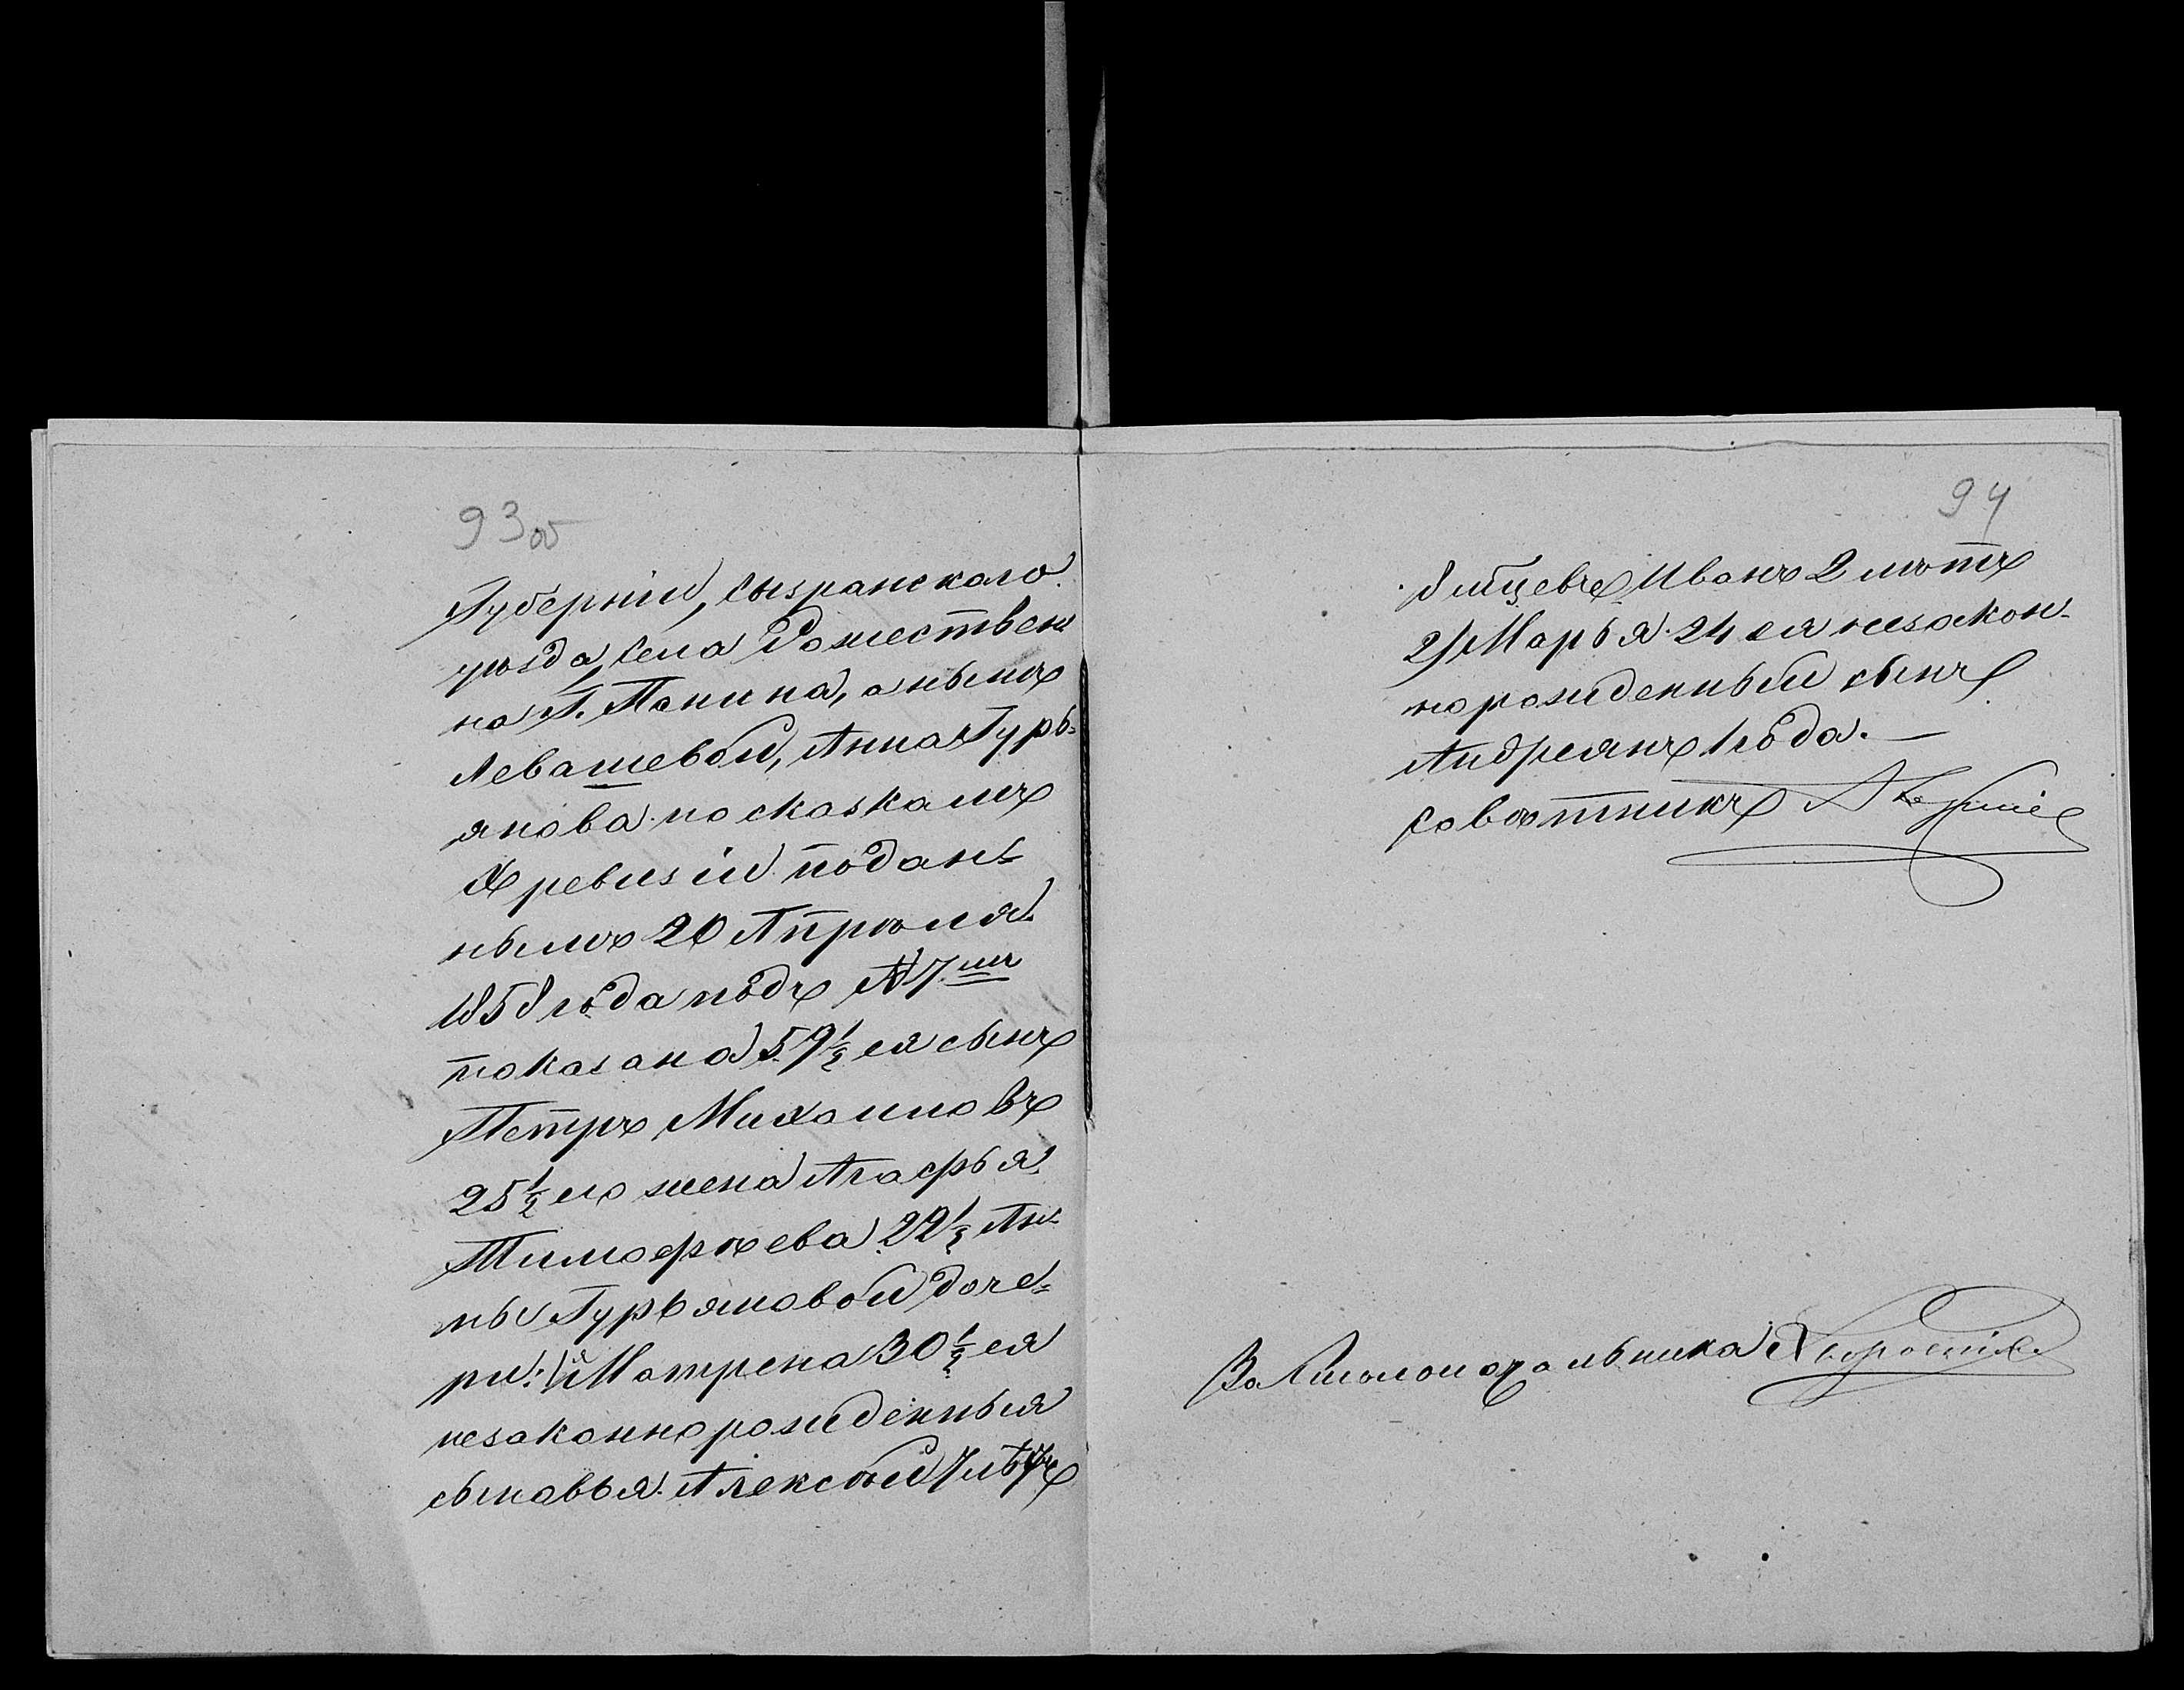 93об
Губерніи, Сызранскаго
уѣзда, села Рожествен
на Г. Панина, а нынѣ
Левашевой, Анна Гурь=
янова по сказкамъ
X ревизіи подан=
нымъ 20 Апрѣля
1858 года подъ № 7мъ
показана 59½ ея сынъ
Петръ Михаиловъ
25½ его жена Агафья
Тимофѣева 22½ Ан=
ны Гурьяновой доче=
ри: 1я Матрена 30½ ея
незаконнорожденныя
сыновья Алексѣй 7 лѣтъ
94
8 мѣсяцевъ Иванъ 2 лѣтъ
2) Марья 24 ея незакон=
норожденный сынъ
Андреянъ 1 года.
Совѣтникъ
За Столоначальника